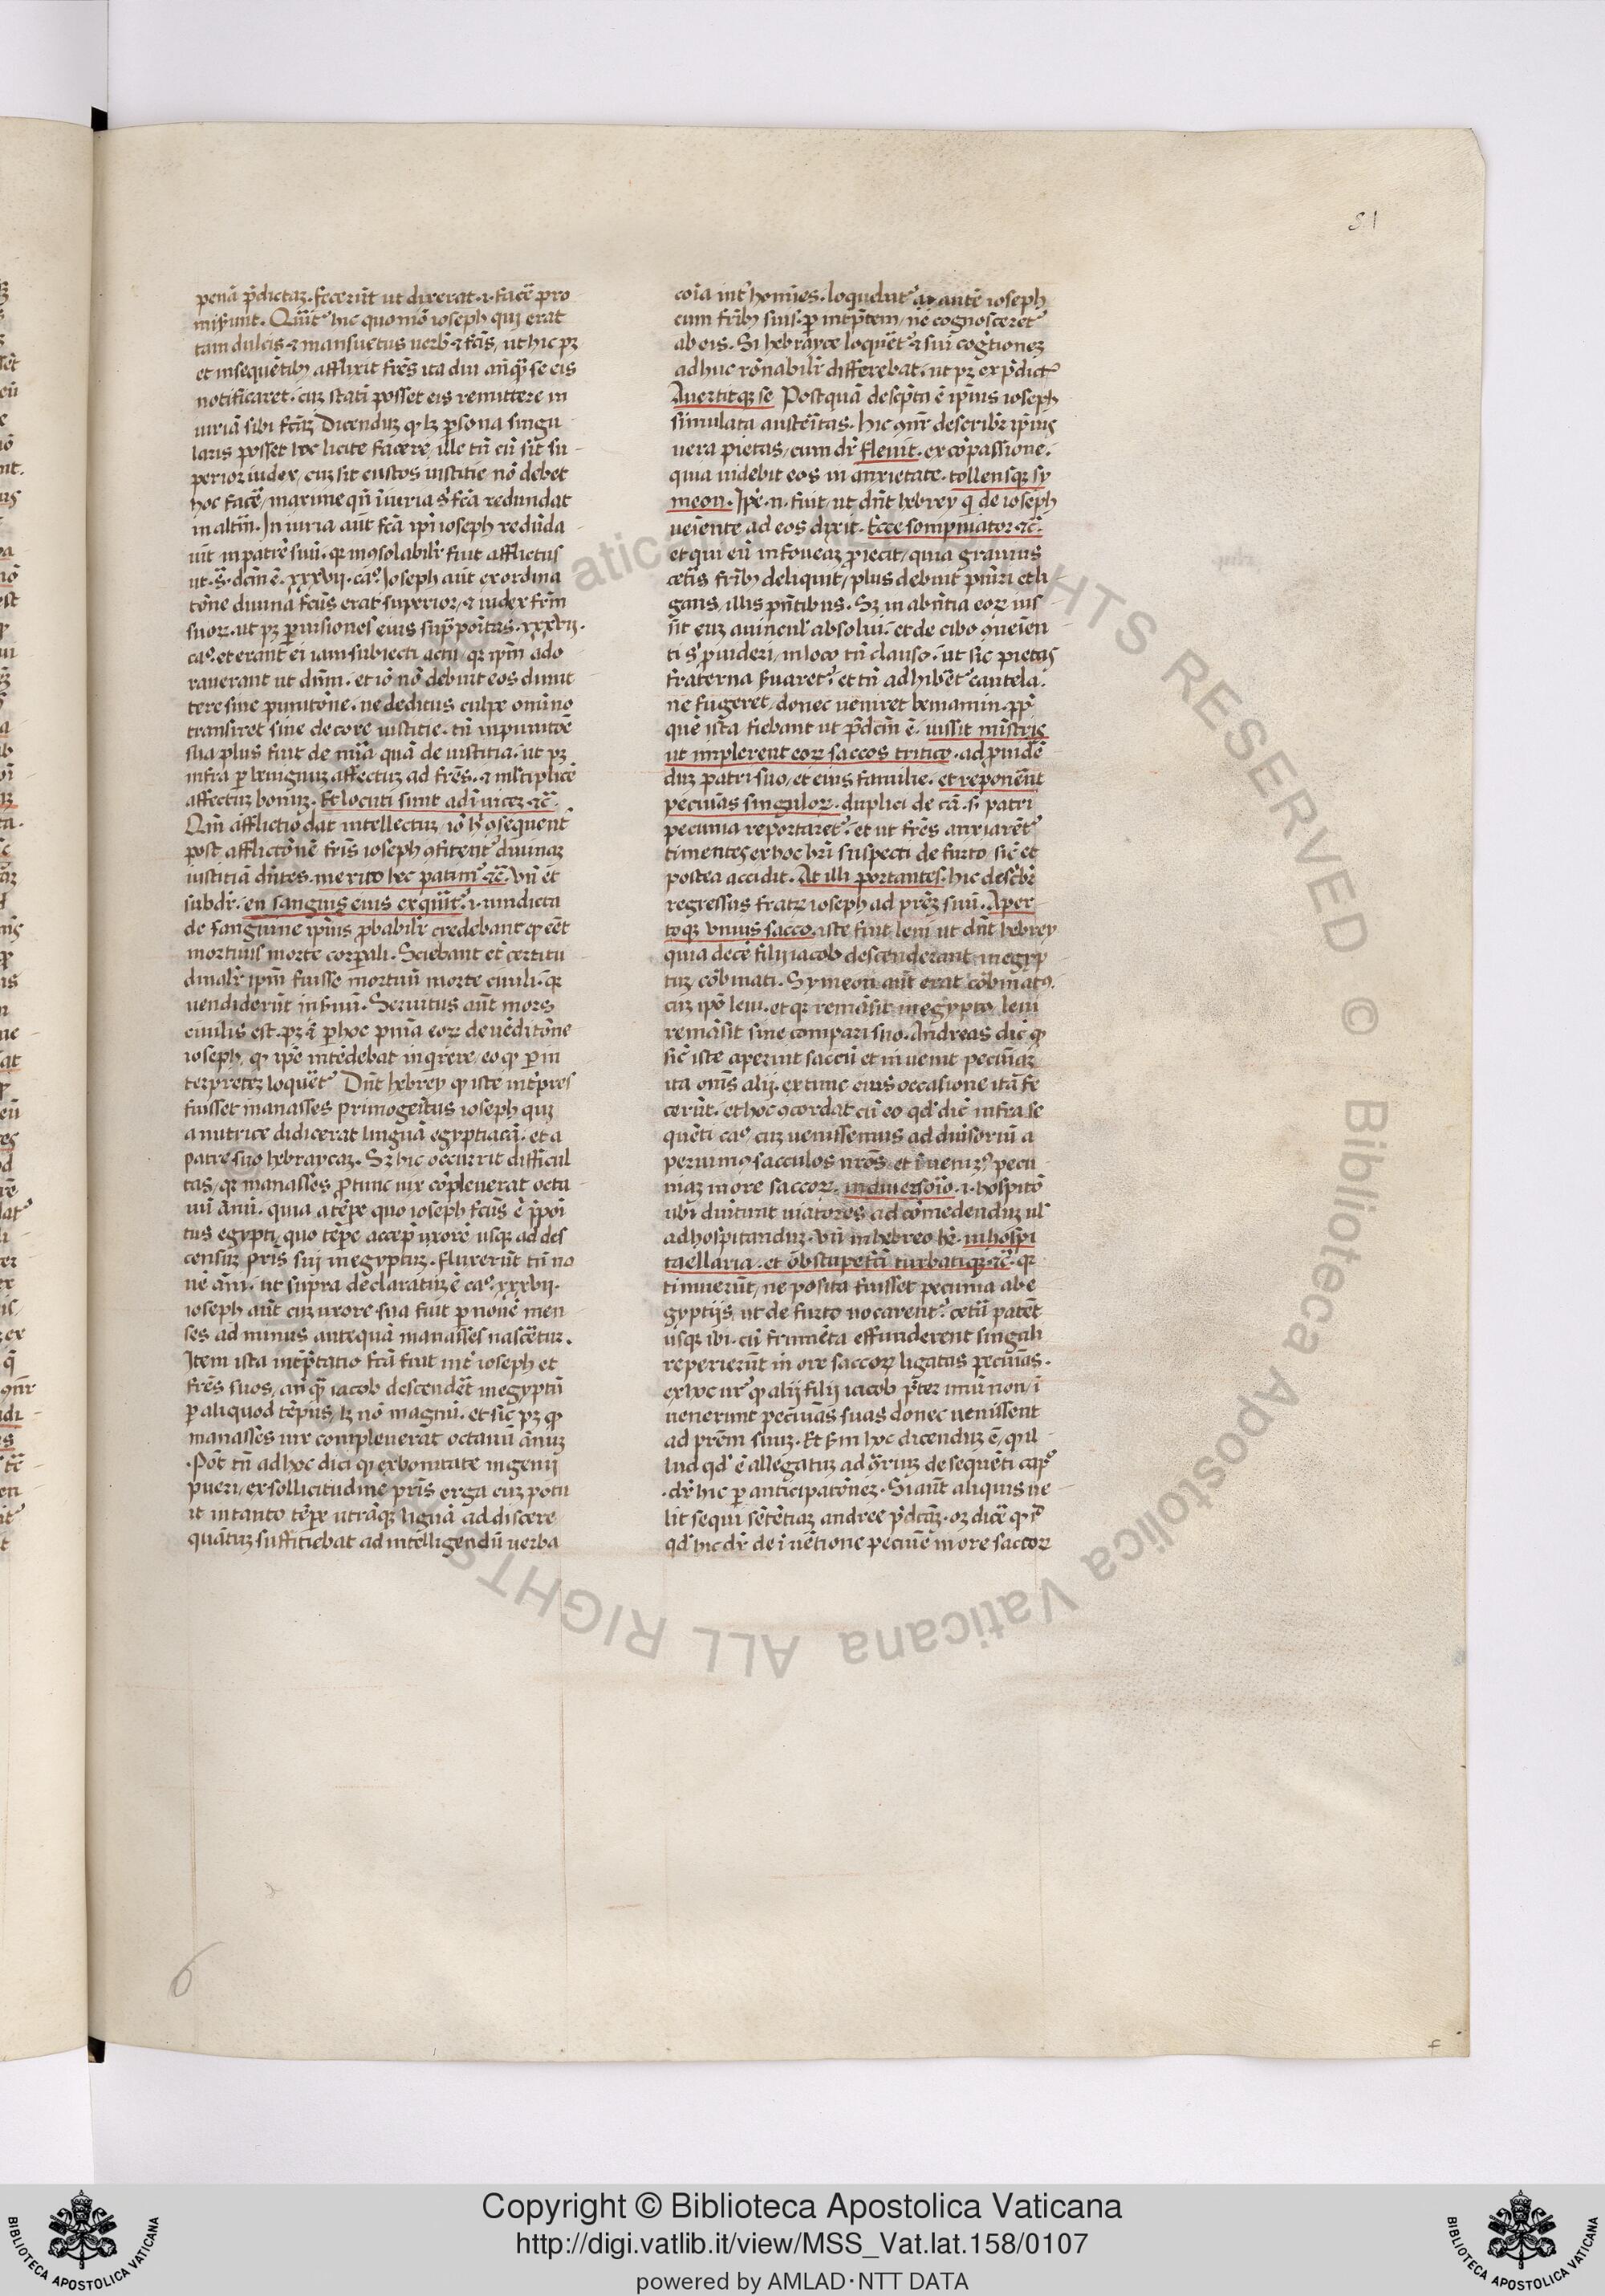 81
penā p̄dictaꝫ. fecerūt ut dixerat. i. facē pro
miserunt. Querit᷑ hic quomō ioseph qui erat
tam dulcis ⁊ mansuetus uerb̄ ⁊ fc̄is, ut hic pꝫ
et insequētibꝫ afflixit frēs ita diu anqᷓ se eis
notificaret. cuꝫ statī posset eis remittere in
iuriā sibi fcāꝫ Dicenduꝫ ꝙ lꝫ ꝑsona singu
laris posset hoc licite facere, ille tn̄ cū sit su-
perior iudex, cuꝫ sit custos iustitie nō debet
hoc facē, maxime qn̄ iniuria s᷑ fcā redundat
in altm̄. In iuria aūt fcā ipi ioseph redūda
uit in patrē suū. qꝛ incōsolabilr̄ fuit afflictus
ut. sᷓ. dcm̄ ē. xxxvii. caº. Ioseph aūt ex ordina
tōne diuinā fcūs erat superior, ⁊ iudex frm̄
suoꝝ. ut pꝫ ꝑ uisiones eius supͣ poitas. xxxvii.
caº. et erant ei iam subiecti actu, qꝛ ipm̄ ado
rauerant ut dn̄m. et iō nō debuit eos dimit
tere sine punitōne. ne deditus culpe omīno
transiret sine decore iustitie. tn̄ in punitōe
sua plus fuit de mīa quā de iustitia. ut pꝫ
infra ꝑ benignuꝫ affectuꝫ ad frēs. ⁊ mltiplicē
affectuꝫ bonuꝫ. Et locuti sunt ad īuiceꝫ ⁊c̄.
Qm̄ afflictio dat intellectuꝫ, iō hͦ ꝯsequent᷑
post afflictōnē frīs ioseph ꝯfitent᷑ diuinaꝫ
iustitiā dn̄tes. merito hec patim᷑ ⁊c̄. vn̄ et
subdr̄. en sanguis eius exqūit᷑. i. uindicta
de sanguine ipius ꝓbabilr̄ credebant ꝙ eēt
mortuus morte corꝑali. Sciebant et certitu
dinalr̄ ipm̄ fuisse mortuū morte ciuili. qꝛ
uendiderūt in s̄uū. Seruitus aūt mors
ciuilis est. pꝫ ē ꝑ hoc pnīa eoꝝ de uēditōne
ioseph, ꝙ ipē intēdebat inqrere, eo ꝙ ꝑ in
terpreteꝫ loquēt᷑ Dn̄t hebrey ꝙ iste int̄pres
fuisset manasses primogenitus ioseph qui
a nutrice didicerat linguā egyptiacā. et a
patre suo hebraycaꝫ. Sꝫ hic occurrit difficul
tas, qꝛ manasses ꝓ tunc uix cōpleuerat octa
uū ānū. quia a tēpe quo ioseph fcūs ē p̄poi
tus egypti, quo tēpe accep̄ uxorē usqꝫ ad des
censuꝫ pr̄is sui in egyptuꝫ. fluxerūt tn̄ no
uē āni. ut supra declaratuꝫ ē caº. xxxvii.
ioseph aūt cuꝫ uxore sua fuit ꝑ nouē men
ses ad minus antequā manasses nascēt᷑.
Item ista int̄ꝑtatio fcā fuit int̄ ioseph et
frēs suos, an̄qᷓ iacob descendēt in egyptū
ꝑ aliquod tēpus, lꝫ nō magnū. et sic pꝫ ꝙ
manasses uix compleuerat octauū ānuꝫ
Pōt tn̄ ad hoc dici ꝙ ex bonitate ingenii
pueri, ex sollicitudine pr̄is erga euꝫ potu
it in tanto tēpe utrāqꝫ liguā addiscere
quātuꝫ sufficiebat ad intelligendū uerba
coīa int̄ homīes. loqudut᷑ aut̄ ioseph
cum frībꝫ suis. ꝑ intp̄tem, nē cognosceret᷑
ab eis. Si hebrayce loquēt᷑ ⁊ sui cogtioneꝫ
adhuc rōnabilr̄ differebat. ut pꝫ ex p̄dict᷑
Auertitqꝫ se Postquā descpta ē ipius ioseph
simulata austēitas. hic ꝯn̄r describr̄ ipius
uera pietas, cum dr̄ fleuit. ex cōpassione.
quia uidebit eos in anxietate. tollensqꝫ sy
meon. Ipē. n. fuit, ut dn̄t hebrey q̄ de ioseph
ueiente ad eos dixit. Ecce sompniator ⁊c̄.
et qui eū in foueaꝫ proiecit, quia grauius
cetīs frībꝫ deliquit, plus debuit puniri et li-
gans, illis pn̄tibus. Sꝫ in abn̄tia eoꝝ ius
sit euꝫ a uincul᷑ absolui. et de cibo ꝯueien
ti s᷑ ꝓuideri, in loco tn̄ clauso. ut sic pietas
fraterna s̄uaret᷑. et tn̄ adhibēt᷑ cautela.
ne fugeret, donec ueniret beniamin. ꝓp̄
quē ista fiebant ut p̄dcm̄ ē. iussit mīstris
ut implerent eoꝝ saccos tritico. ad ꝓuidē
duꝫ patri suo, et eius familie. et reponēnt
pecuīas singuloꝝ. duplici de cā. s̄. patri
pecunia reportaret᷑. et ut frēs anxiarēt᷑
timentes ex hoc hr̄i suspecti de furto, sic et
postea accidit. At illi portantes. hic descbr̄
regressus fratꝝ ioseph ad prēꝫ suū. Aper
toqꝫ vnius sacco. iste fuit leui ut dn̄t hebrey
quia decē filii iacob descenderant in egyp
tuꝫ cōbinati. Symeon aūt erat cōbinatꝰ
cuꝫ ipo leui. et qꝛ remāsit in egypto leui
remāsit sine compari suo. Andreas dic̄ ꝙ
sic iste aperuit saccū et in uenit pecuīaꝫ
ita omīs alii. ex tunc eius occasione ita fe
cerūt. et hoc ꝯcordat cū eo qd̄ dic̄ infra se
quēti caº cuꝫ uenissemus ad diuīsoriū a
peruimꝰ sacculos nros. et īuenimꝰ pecu
niaꝫ in ore saccoꝝ. in diuersoīo. i. hospitō
ubi diuitunt uiatores ad cōmedenduꝫ ul᷑
ad hospitanduꝫ. Vn̄ in hebreo hr̄. in hospi
taellaria. et obstupefcī turbatiqꝫ ⁊c̄. qꝛ
timuerūt, ne posita fuisset pecunia ab e
gyptiis, ut de furto uocarent᷑. cetū patēt
usqꝫ ibi. cū frumēta effunderent singuli
reperierūt in ore saccoꝝ ligatas pecuīas.
ex hoc ur̄ ꝙ alii filii iacob p̄ter unū non, ī
uenerunt pecuīas suas donec uenissent
ad prēm suuꝫ. Et s̄m hoc dicenduꝫ ē, ꝙ il
lud qd̄ ē allegatuꝫ ad ꝯriuꝫ de sequēti capº
dr̄ hic ꝑ anticipatōneꝫ. Si aūt aliquis ue
lit sequi sētētiaꝫ andree p̄dcāꝫ. oꝫ dicē ꝙ
qd̄ hic dr̄ de īuētione pecuīe in ore saccoꝝ
6
f
ALL RIGHTS RESERVED © Biblioteca Apostolica Vaticana ALL RIGHTS
BIBLIOTECA APOSTOLICA VATICANA
Copyright © Biblioteca Apostolica Vaticana
http://digi.vatlib.it/view/MSS_Vat.lat.158/0107
powered by AMLAD·NTT DATA
BIBLIOTECA APOSTOLICA VATICANA